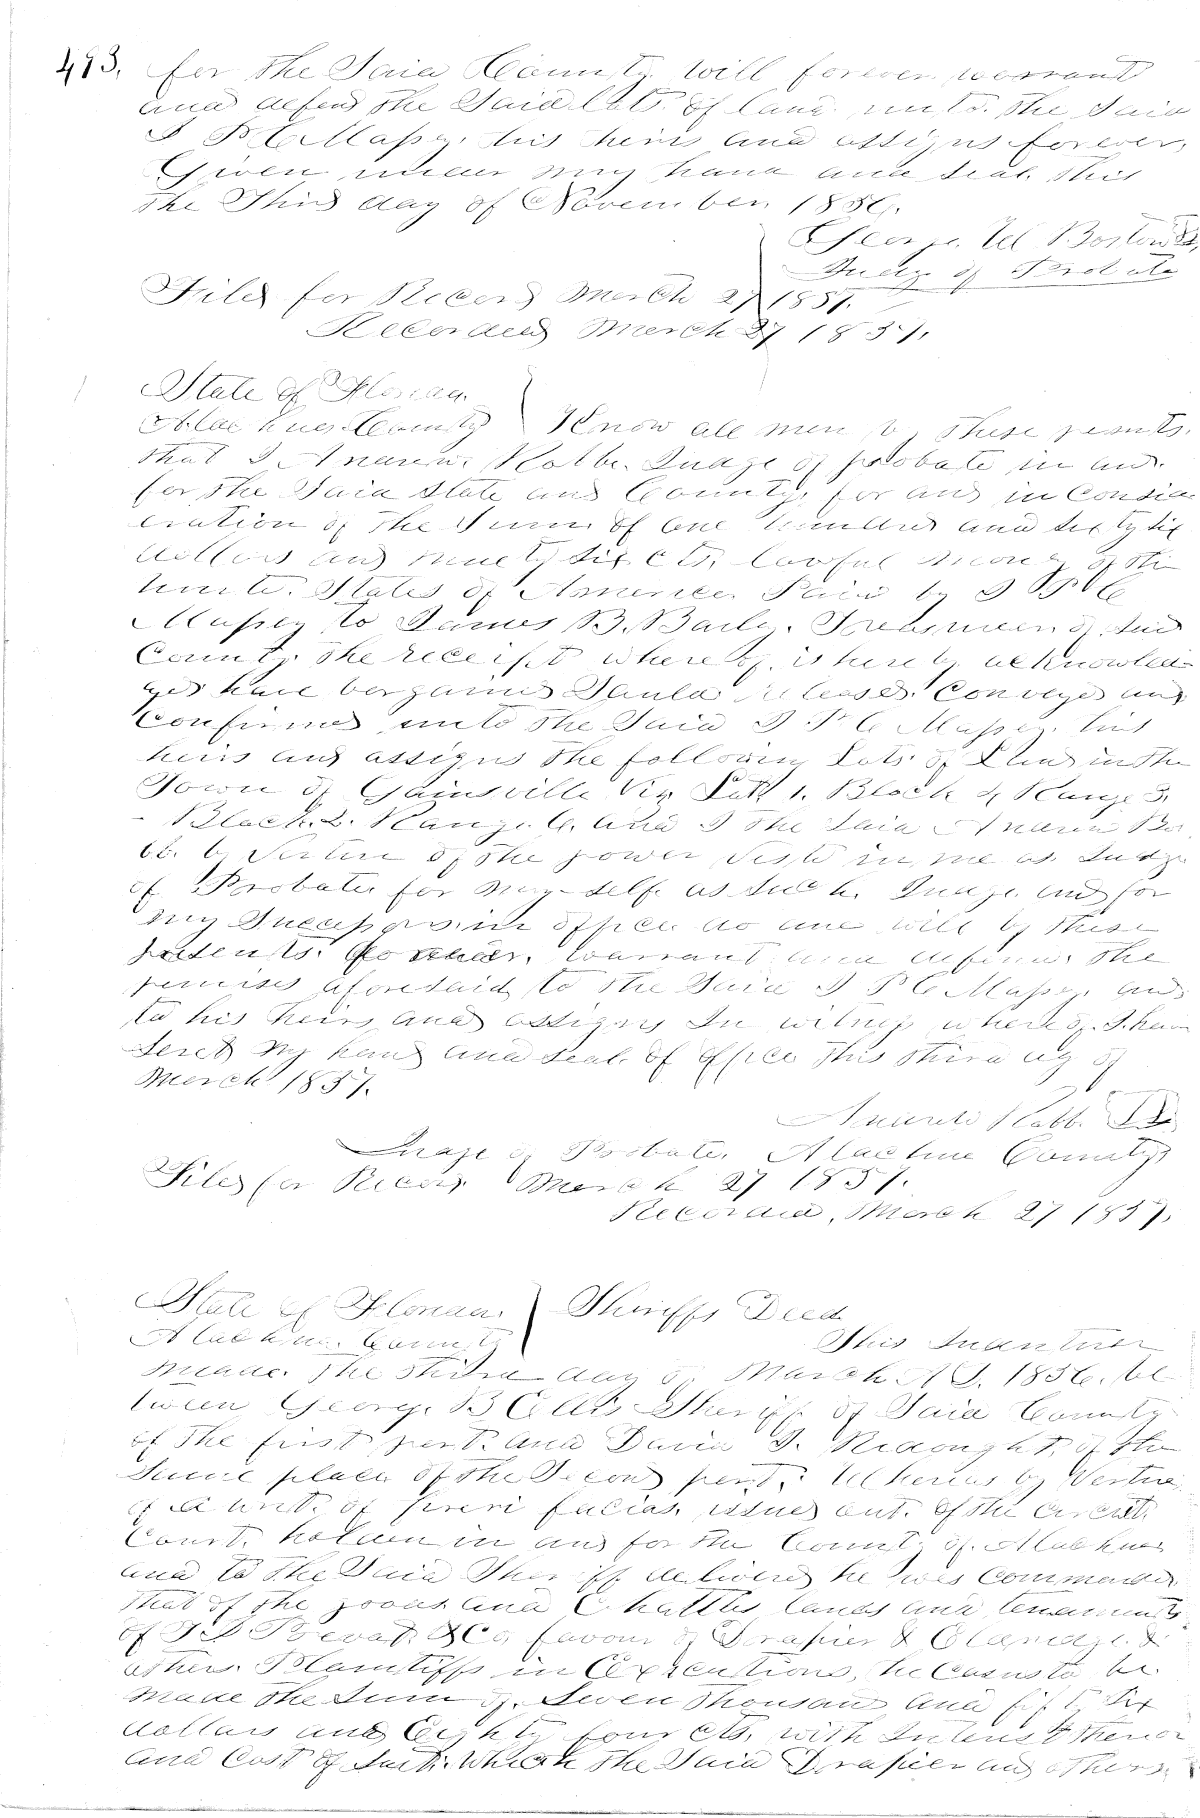 493. for the Said County will forever warrant
and defend the Said lots of land unto the Said
his heirs and assigns forever,
Given under my hand and seal this
the Third day of November 1856.
George W Bostow
Judge of Probate
Filed for Record March 27 1857.
Recorded March 27 1857.
State of Florida
Alachua County Know all men by these presents
that I Andrew Robb. Judge of probate in and
for the Said State and County, for and in Consid
eration of the Sum of One hundred and sixty six
dollars and ninety six cts, lawful money of the
United States of America Paid by
Massey to James B. Baily. Treasureer of Said
County the receipt whereof is hereby acknowled
ged have bargained released Conveyed and
Confirmed unto the Said I P C Massey. his
heirs and assigns the following Lots of Land in the
Town of Gainsville Viz Lot 1. Block 4 Range 3.
Block. 2. Range. 6. And I the Said Andrew Ro
bb. by Virtue of the power in me as Judge
of Probate for my-self as Such Judge and for
my Successors in office do and will by these
presents. forever. warrant and defend the
premises aforesaid to the Said I P C Massey. and
to his heirs and assigns In witness whereof. I have
Seret my hand and seal of office this third day of
March 1857.
Andrew Robb.
Judge of Probate. Alachua County
Filed for Record March 27 1857.
Recorded, March 27 1857.
State of Florida. Sheriffs Deed
Alachua County This Indenture
made. The third day of March A D. 1856. be
tween George B Ellis Sheriff of Said County
of the first part. and David of the
Same place of the Second part. Whereas by Vertue
of a writ of fieri facias. issued out. of the circuit
Court. holden in and for the County of. Alachua
and to the Said Sheriff delivered he was Commanded
that of the goods and Chattles lands and tenaments
of & Co favour of Drapier & &
others. Plaintiffs in Executions, he Caused to be
made the Sum of. Seven thousand and fifty Six
dollars and Eighty four cts, with Interest thereon
and Cost of Suit. Which the Said Drapier and others